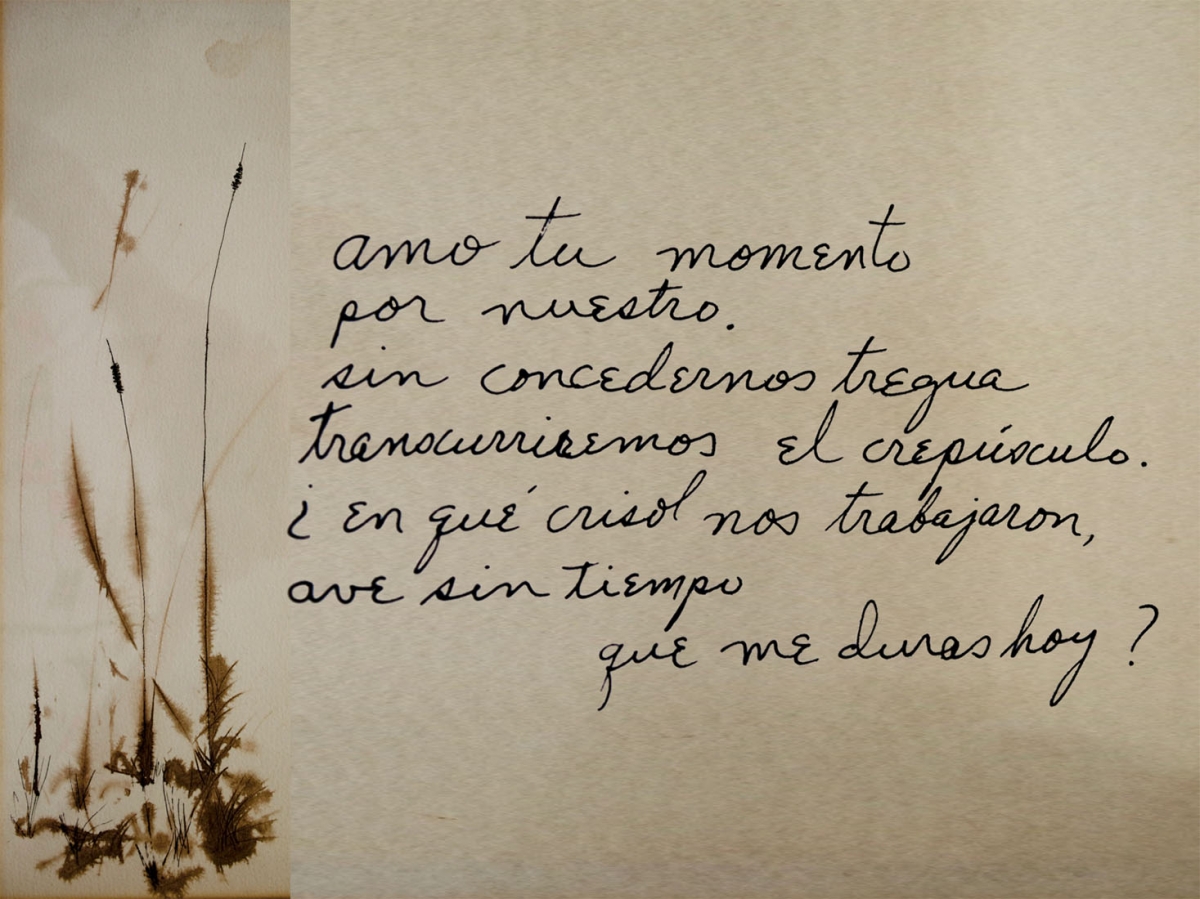 amo tu momento
por nuestro.
sin concedernos tregua
transcurriremos el crepúsculo.
¿en qué crisol nos trabajaron,
ave sin tiempo
que me duras hoy?